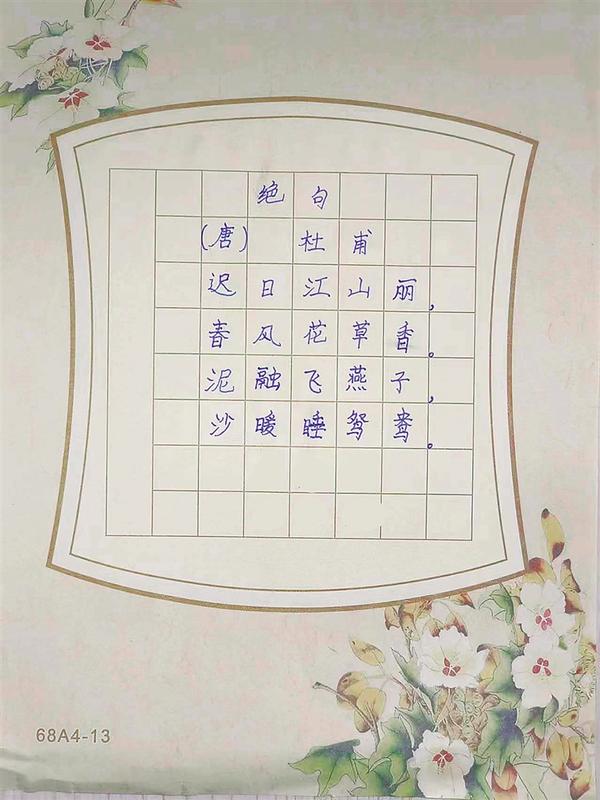 绝句
(唐) 杜甫
迟日江山丽,
春风花草香。
泥融飞燕子,
沙暖睡鸳鸯。
68A4-13